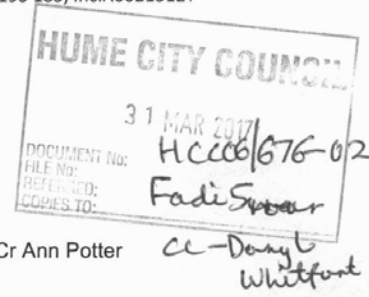 HUME CITY COUNCIL
31 MAR 2017
DOCUMENT No: HCC06/676-02
FILE No:
REFERRED: Fadi
COPIES TO:
Cr Ann Potter cc - Darryl
Whitfort